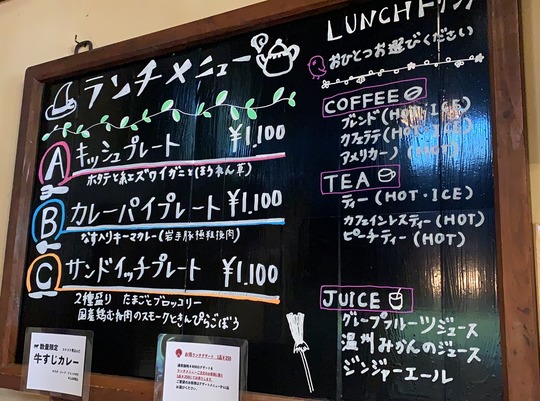 ランチメニュー
A キッシュプレート ¥1,100
ホタテと紅ズワイガニと(ほうれん草)
B カレーパイプレート ¥1,100
なす入りキーマカレー(岩手豚極粗挽肉)
C サンドイッチプレート ¥1,100
2種盛り たまごとブロッコリー
国産鶏むね肉のスモークときんぴらごぼう
LUNCHドリンク
おひとつお選びください
COFFEE
ブレンド(HOT・ICE)
カフェラテ(HOT・ICE)
アメリカーノ(HOT)
TEA
ティー(HOT・ICE)
カフェインレスティー(HOT)
ピーチティー(HOT)
JUICE
グレープフルーツジュース
温州みかんのジュース
ジンジャーエール
数量限定
牛すじカレー
お得ランチデザート 1品¥250